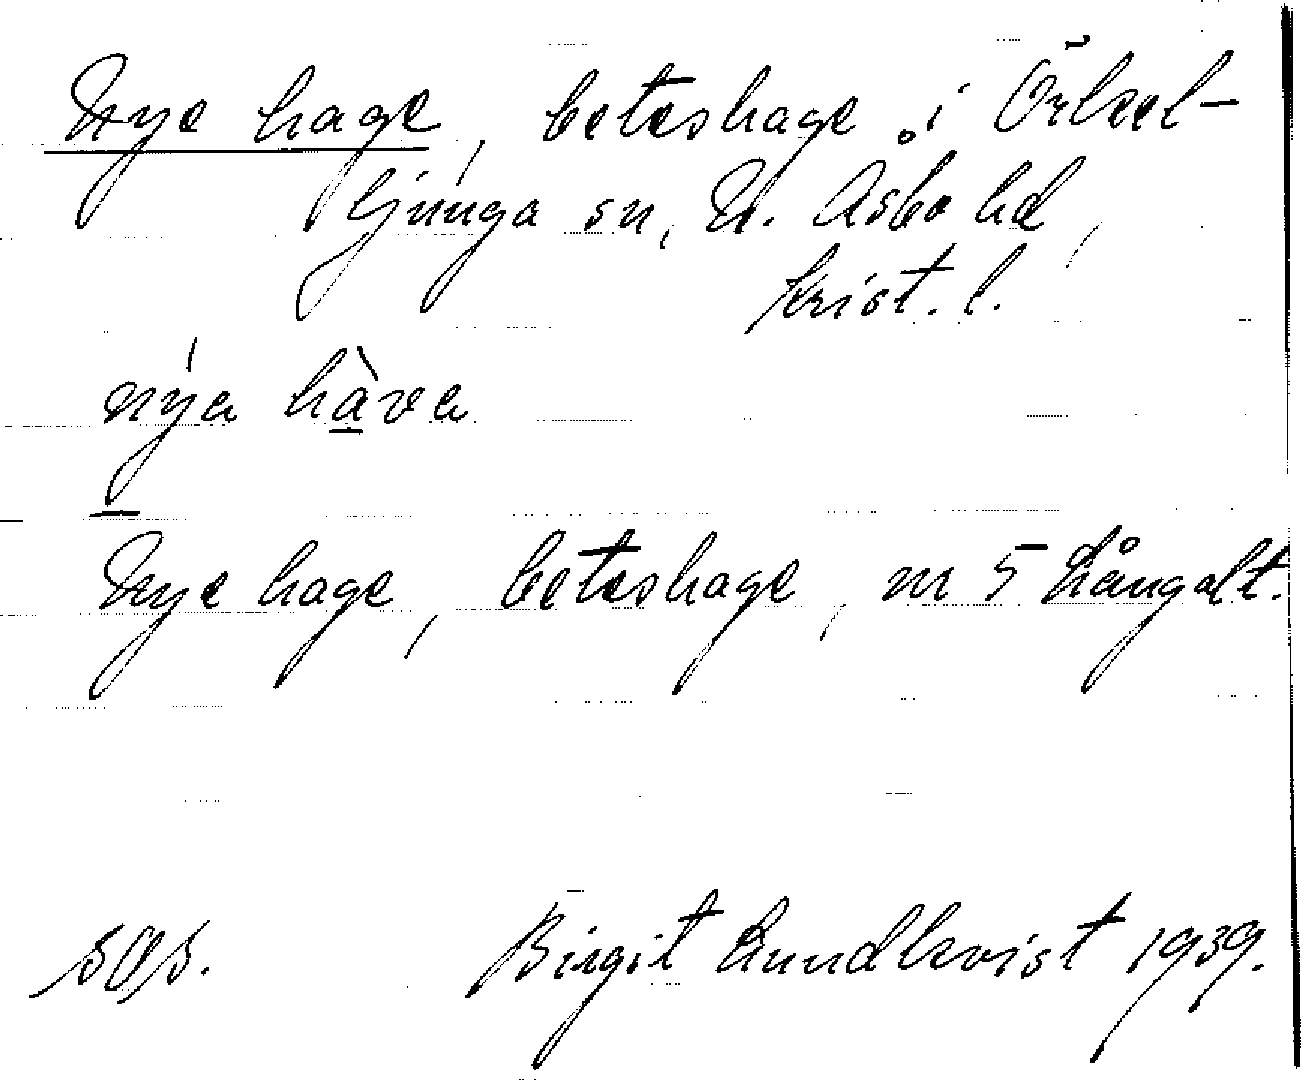 Nye hage, beteshage i Örkel-
ljunga sn, N. Åsbo hd,
Krist. l.
nýa hàva
Nye hage, beteshage, nr 5 Långalt.
Birgit Lundkvist 1939.